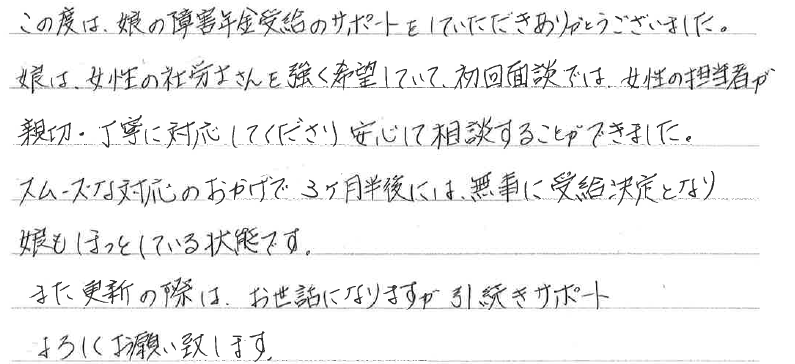 この度は、娘の障害年金受給のサポートをしていただきありがとうございました。
娘は、女性の社労士さんを強く希望していて、初回面談では、女性の担当者が
親切・丁寧に対応してくださり安心して相談することができました。
スムーズな対応のおかげで3ヶ月半後には、無事に受給決定となり
娘もほっとしている状態です。
また更新の際は、お世話になりますが引続きサポート
よろしくお願い致します。